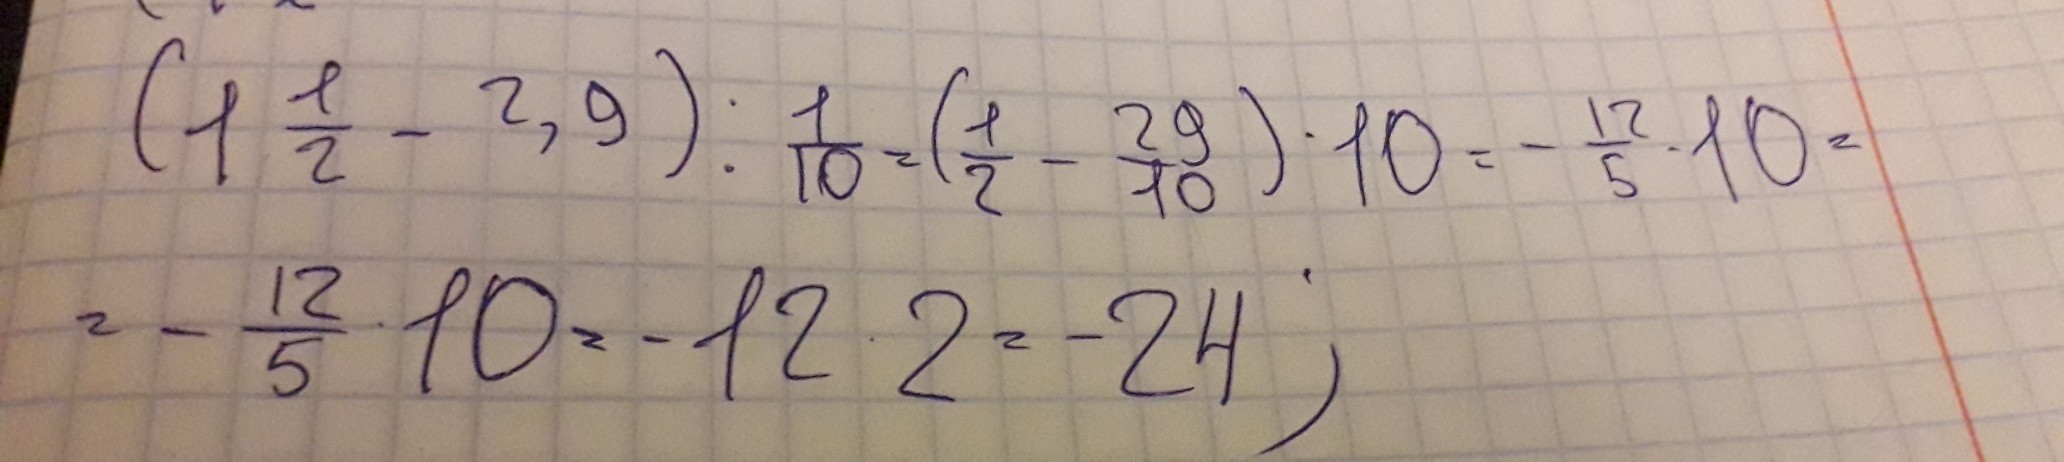 (1 1/2 - 2,9) : 1/10 = (1/2 - 29/10) · 10 = - 12/5 · 10 =
= - 12/5 · 10 = -12 · 2 = -24;